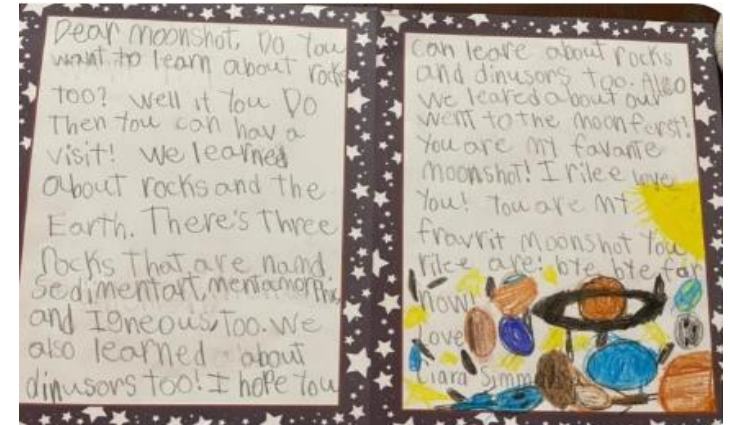 Dear moonshot, Do You
want to learn about rocks
too? well if You Do
Then You can hav a
visit! We learned
about rocks and the
Earth. There's Three
Rocks That are namd
Sedimentart, mentamorphic,
and Igneous, Too. We
also learned about
dinusors Too! I hope You
can leare about rocks
and dinusors too. Also
we leared about our
went to the moon ferst!
You are my favante
moonshot! I rilee love
You! You are MY
fravrit Moonshot You
rilee are! bye bye for
now!
Love
Ciara